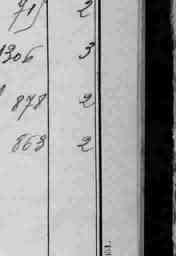 715 2
1306 3
878 2
863 2